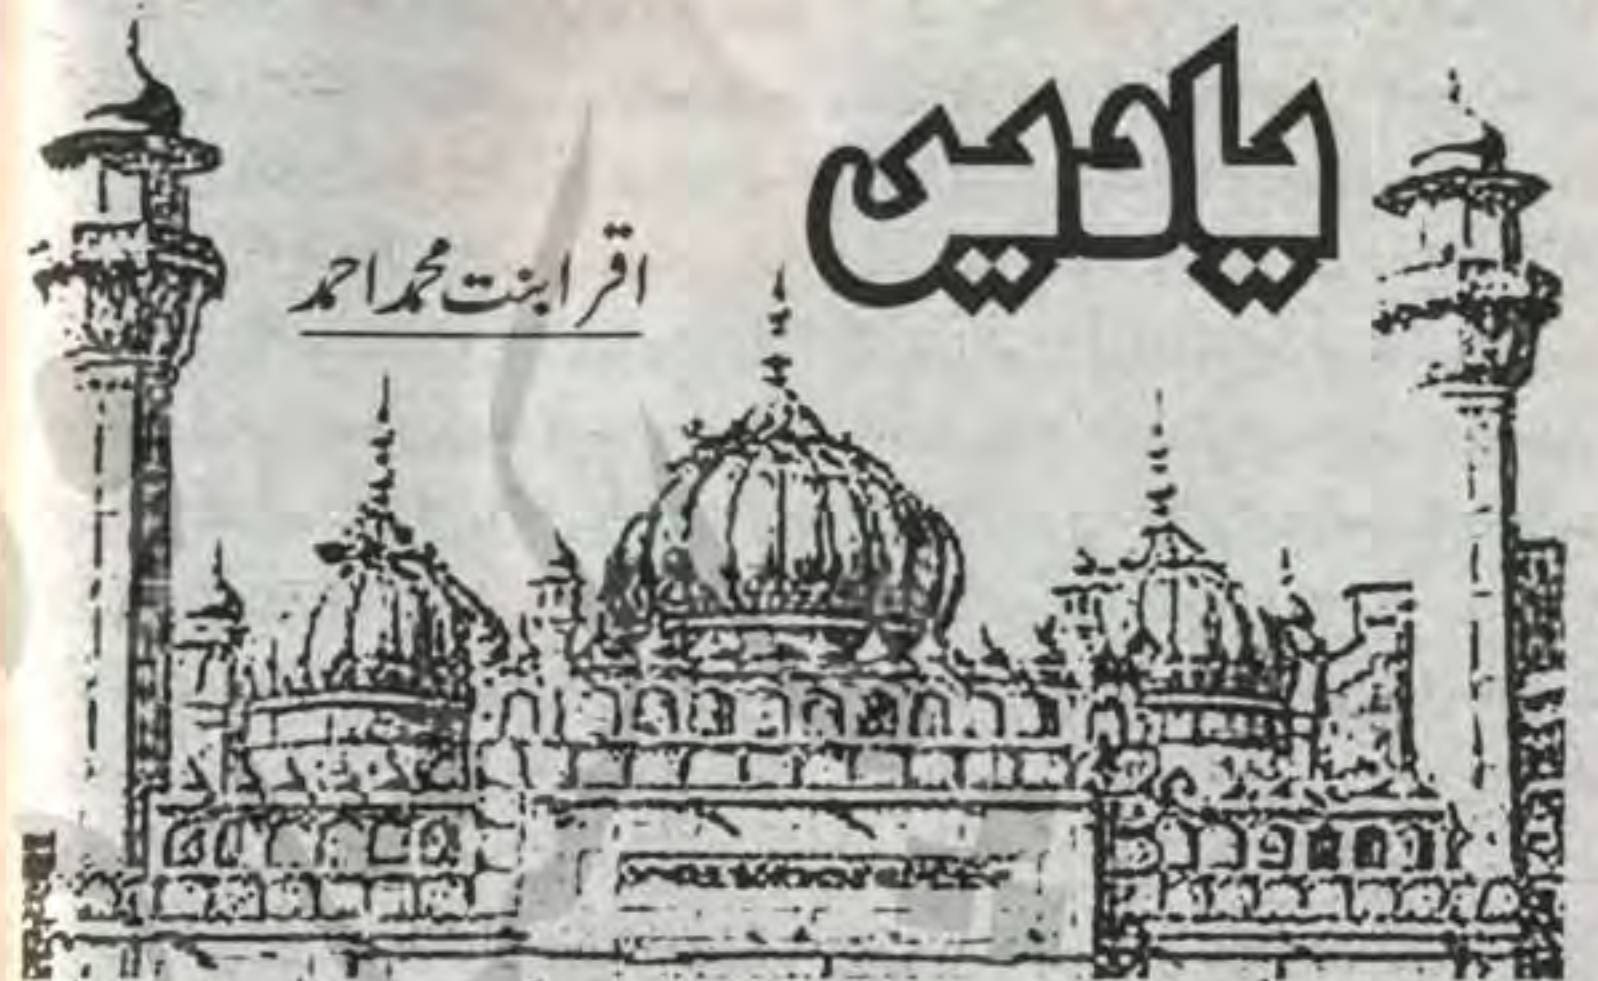 یادیں
اقرا بنت محمد احمد